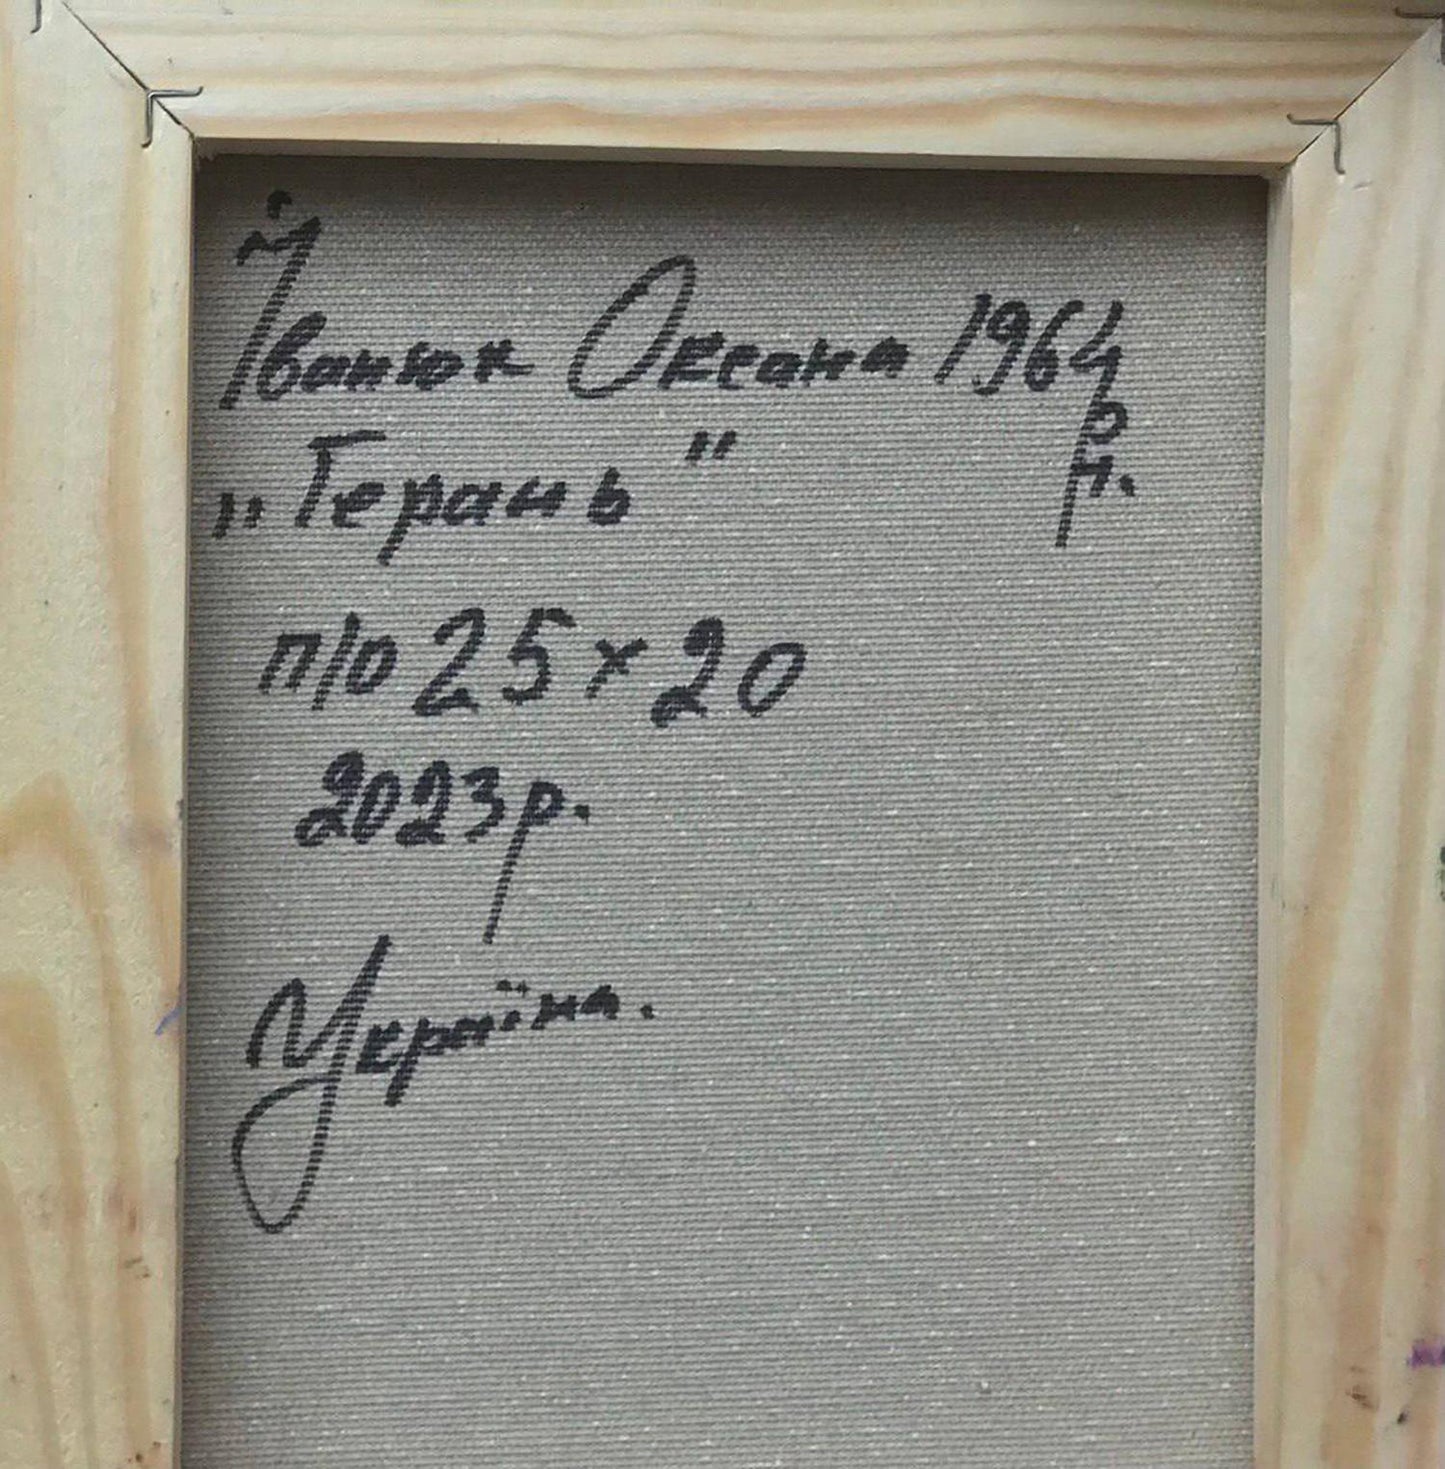 Іванюк Оксана 1964
р
н.
„Герань"
п/о 25×20
2023р.
Україна.